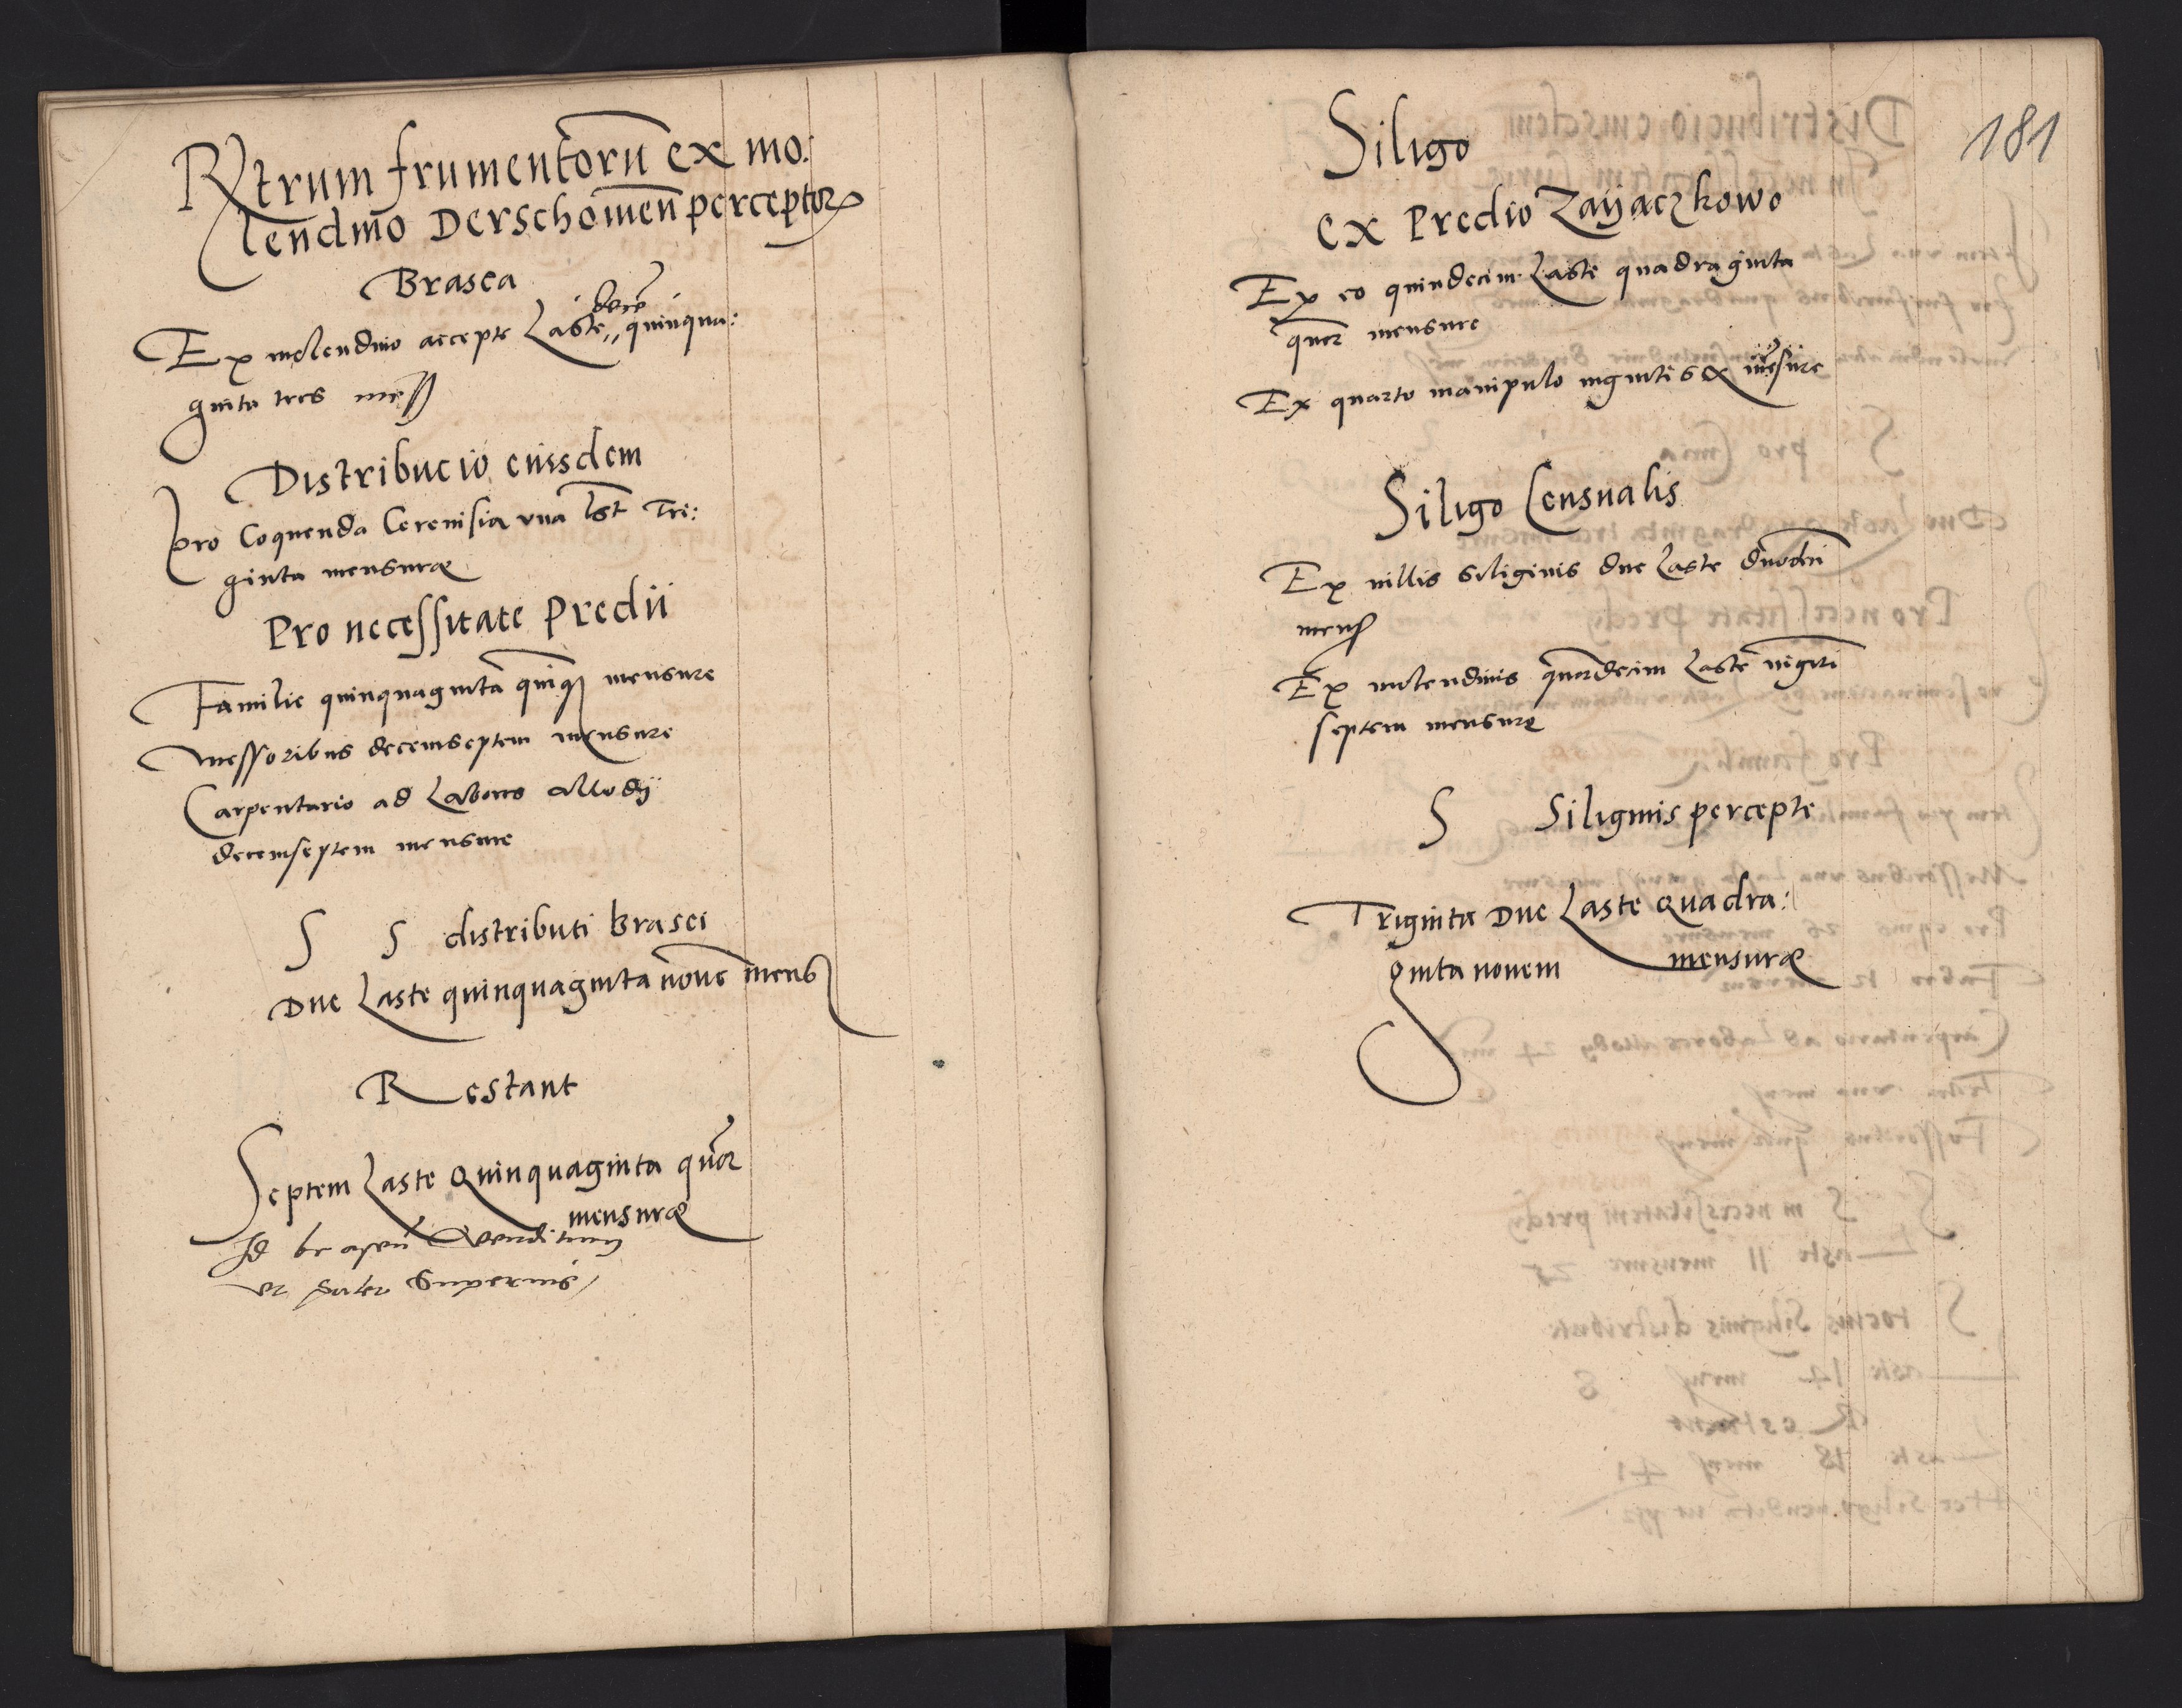 Rtrum frumentorũ ex mo:
lendino Derschoweñ perceptoꝝ
Brasea
Ex molendino accepte Laste decẽ quinqua:
ginta tres meñ
Distribucio eiusdem
Pro Coquenda Cerevisia vna last Tri:
ginta mensuræ
Pro necessitate Predii
Familie quinquaginta quinqȝ mensure
Messoribus decemseptem mensure
Carpentario ad Labores allodij
decemseptem mensure
S S distributi brasei
Due Laste quinquaginta nove mens
Restant
Septem Laste Quinquaginta quor
mensuræ
Id braseũ venditum
vt patet Superius
181
Siligo
ex Predio Zayaczkowo
Ex eo quindecim Laste quadraginta
quor mensure
Ex quarto manipulo viginti sex mẽsure
Siligo Censualis
Ex villis Siliginis due Laste duodeci
mens
Ex molendinis quordecim Laste vigiti
septem mensuræ
S Siliginis percepte
Triginta Due Laste Quadra:
ginta novem mensuræ